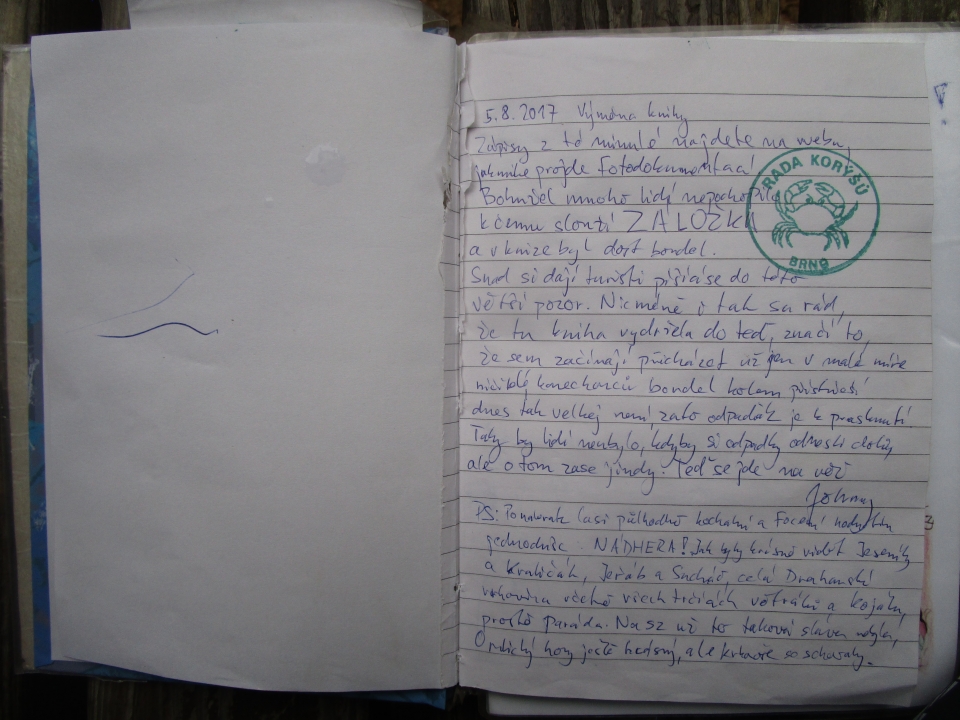 5.8.2017 Výměna knihy
Zápisy z té minulé najdete na webu,
jakmile projde fotodokumentací
Bohužel mnoho lidí nepochopilo
k čemu slouží ZÁLOŽKA
a v knize byl dost bordel.
Snad si dají turisti píšící se do této
větší pozor. Nicméně i tak sa rád,
že tu kniha vydržela do teď, značí to,
že sem začínají přicházet už jen v malé míře
ničitelé konechonců bordel kolem přístřeší
dnes tak velkej není, zato odpaďák je k prasknutí.
Taky by lidí neubylo, kdyby si odpadky odnesli dolů,
ale o tom zase jindy. Teď se jde na věž
Johny
PS: Po návratu (asi půlhodně kochání a focení
jednoduše: NÁDHERA! Jak byly krásně vidět Jeseníky
a Kraličák, Jeřáb a Sucháč, celá Drahanská
vrhovina včetně všech větráků a Kojálu,
prostě paráda. Na sz už to taková sláva nebyla,
Orlický hory ještě hádsný, ale schovaly.
RADA KORÝŠŮ
BRNO